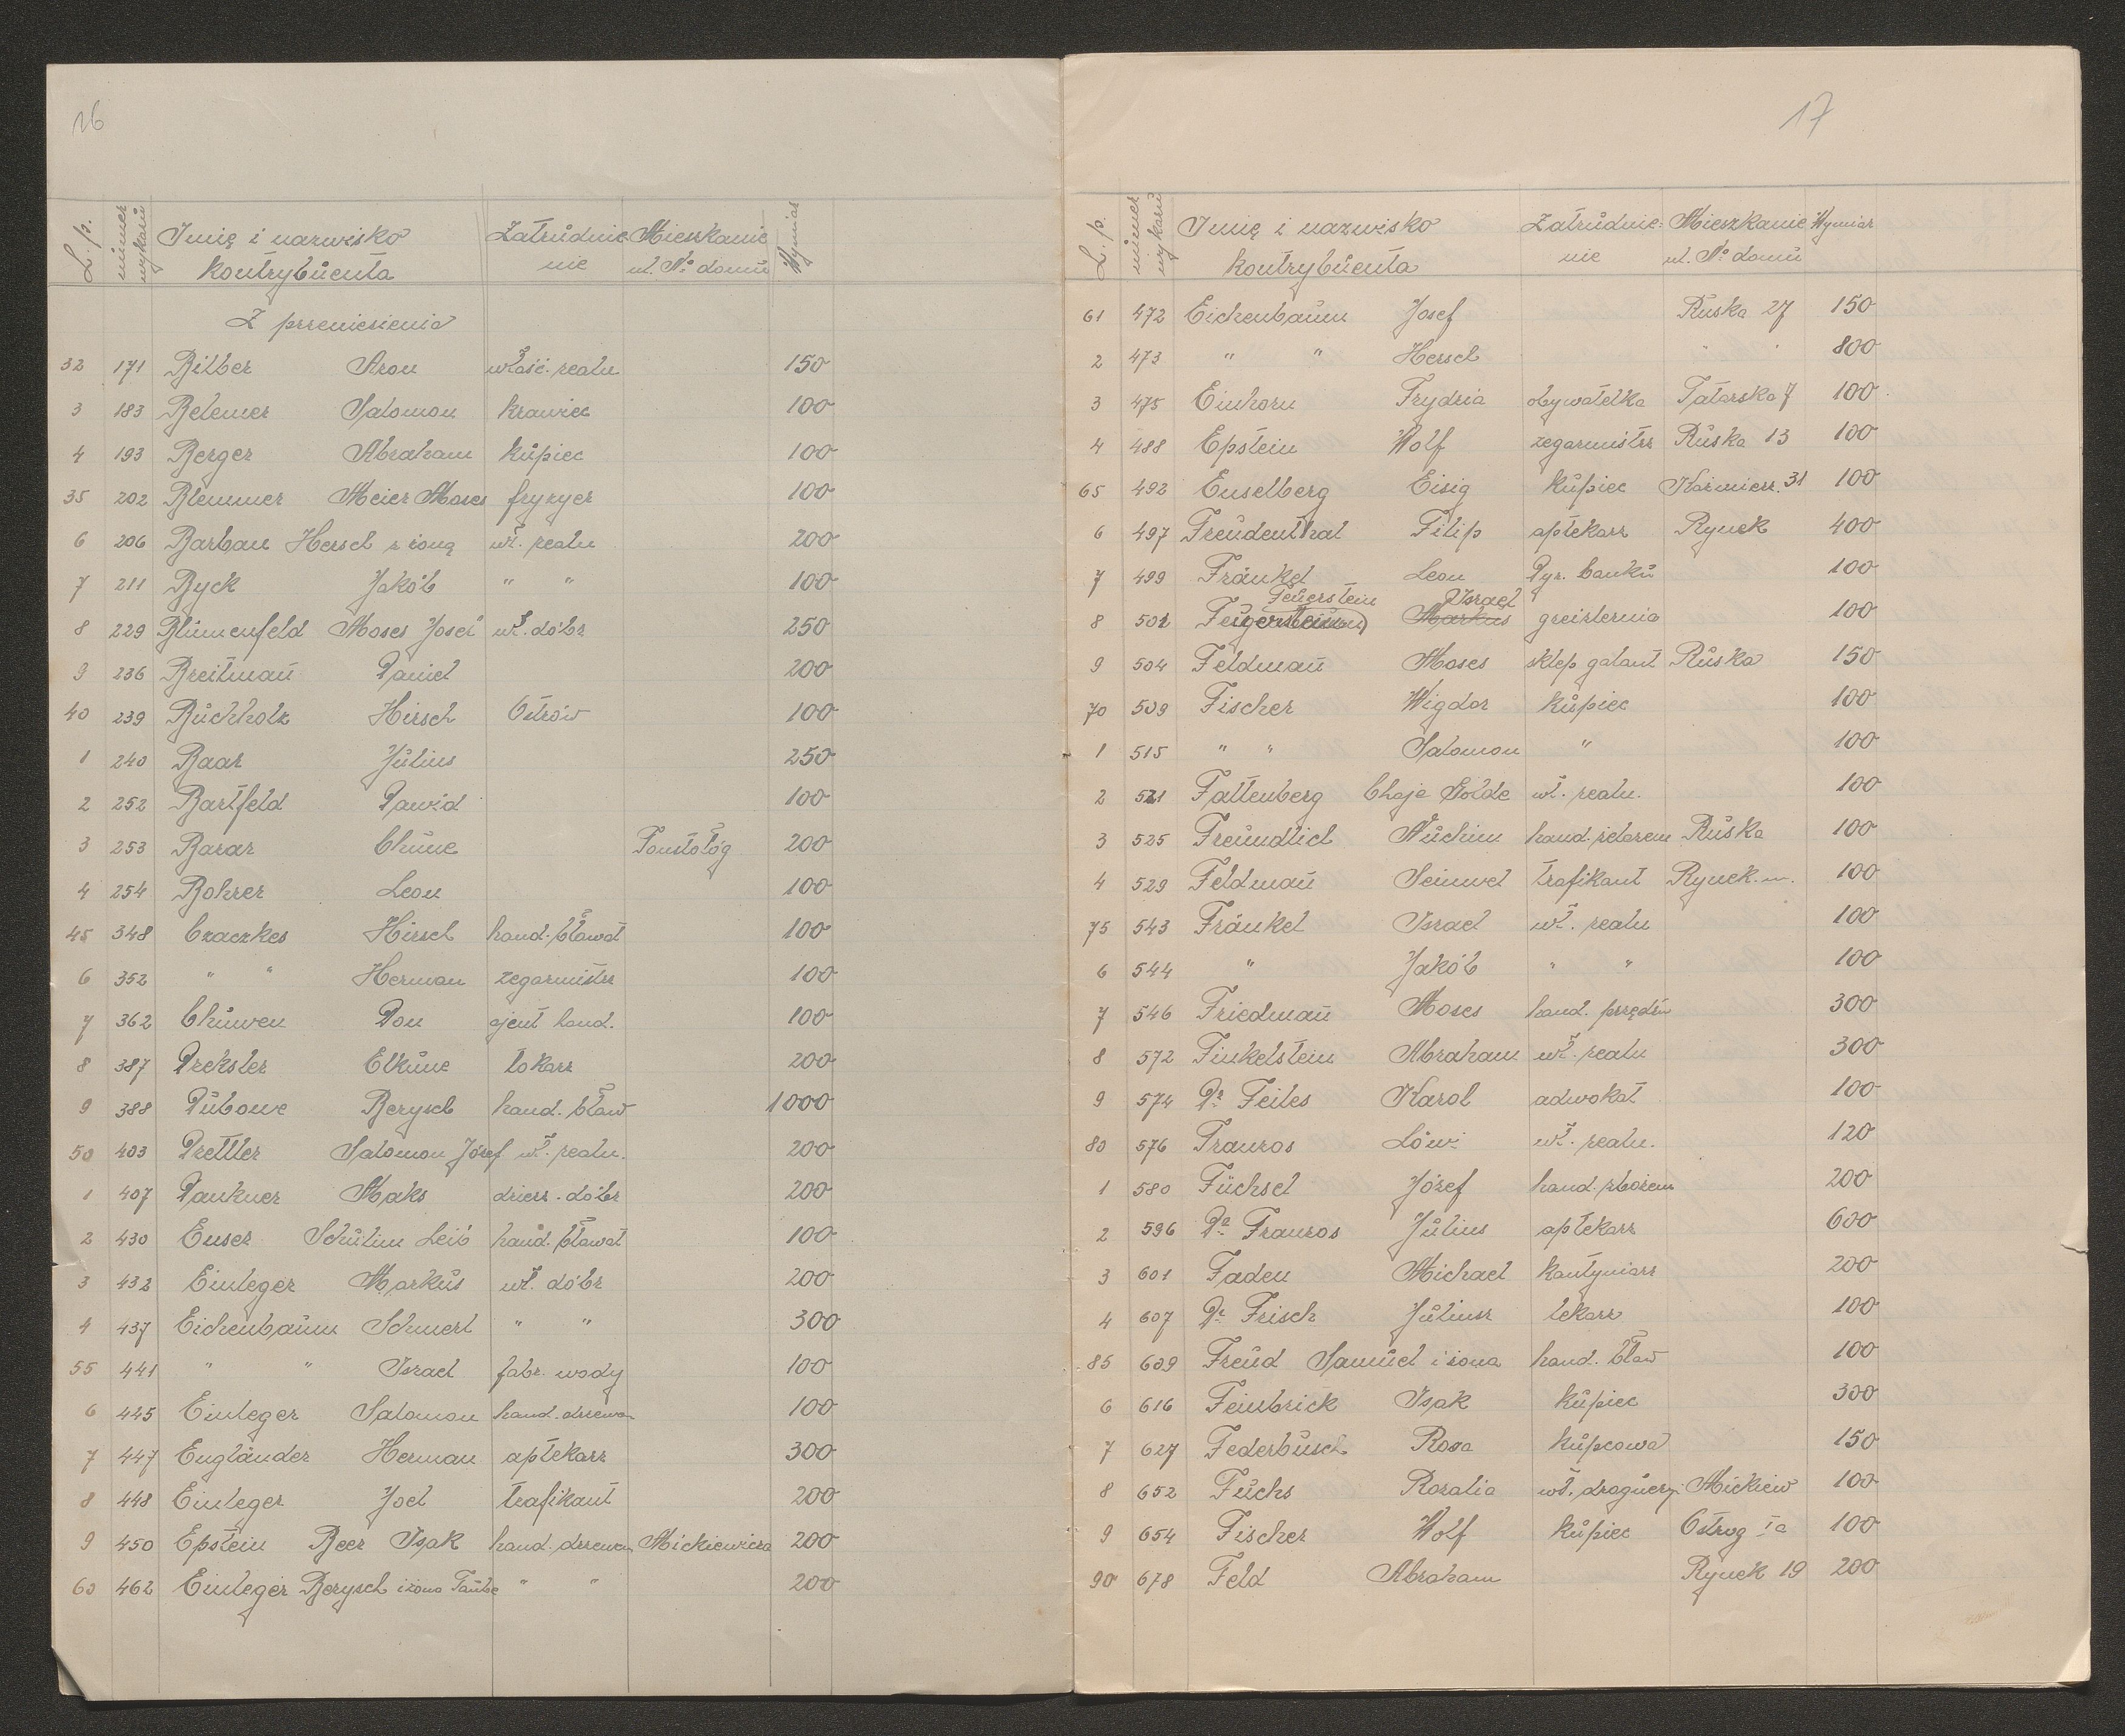 16
L. p. numer wykazu Imię i nazwisko kontrybuenta Zatrudnienie Mieszkanie ul. No domu Wymiar
Z przeniesienia
32 171 Bilber Aron właśc. realn 150
3 183 Belemer Salomon krawiec 100
4 193 Berger Abraham kupiec 100
35 202 Blemmer Meier Moses fryzyer 100
6 206 Barban Hersch z żoną wł. realn 200
7 211 Byck Jakób " " 100
8 229 Blumenfeld Moses Josel wł. dóbr 250
9 236 Breitman Daniel 200
40 239 Buchholz Hirsch Ostrów 100
1 240 Baar Julius 250
2 252 Bartfeld Dawid 100
3 253 Barar Chune 200
4 254 Bohrer Leon 100
45 348 Czaczkes Hirsch hand. bławat 100
6 352 " " Herman zegarmistrz 100
7 362 Chuwen Don ajent hand. 100
8 387 Drekster Elkune tokarz 200
9 388 Dubowe Berysch hand. bław 1000
50 403 Drettler Salomon Józef wł. realn. 200
1 407 Dankner Maks dzierż. dóbr 200
2 430 Euser Schulim Leib hand. bławat 100
3 432 Einleger Markus wł. dóbr 200
4 437 Eichenbaum Schmerl " " 300
55 441 " " Israel fabr. wody 100
6 445 Einleger Salomon hand. drzewem 100
7 447 Engländer Herman aptekarz 300
8 448 Einleger Joel trafikant 200
9 450 Epstein Beer Isak hand. drzewem Mickiewicza 200
60 462 Einleger Berysch i żona Taube " " 200
17
L. p. numer wykazu Imię i nazwisko kontrybuenta Zatrudnie-nie Mieszkanie ul. No domu Wymiar
61 472 Eichenbaum Josef Ruska 27 150
2 473 " " Hersch " " 800
3 475 Einhorn Frydzia obywatelka Tatarska 7 100
4 488 Epstein Wolf zegarmistrz Ruska 13 100
65 492 Enselberg Eisig kupiec Kazmierz. 31 100
6 497 Freudenthal Filip aptekarz Rynek 400
7 499 Fränkel Leon Dyr. banku 100
Feuerstein Israel
8 501 Markus greislernia 100
9 504 Feldman Moses sklep galant Ruska 150
70 509 Fischer Wigdor kupiec 100
1 515 " " Salomon " 100
2 521 Fallenberg Chaje Golde wł. realn. 100
3 525 Freundlich Nuchim hand. żelazem Ruska 100
4 529 Feldman Seinwel trafikant Rynek 100
75 543 Fränkel Israel wł. realn 100
6 544 " Jakób " " 100
7 546 Friedman Moses hand. przędzą 300
8 572 Finkelstein Abraham wł. realn 300
9 574 Dr Feiles Karol adwokat 100
80 576 Franzos Löwi wł. realn. 120
1 580 Füchsel Józef hand. zbożem 200
2 596 Dr Franzos Julius aptekarz 600
3 601 Faden Michael kantyniarz 200
4 607 Dr Frisch Juliusz lekarz 100
85 609 Freud Samuel i żona hand. bław 100
6 616 Feinbrick Isak kupiec 300
7 627 Federbusch Roza kupcowa 150
8 652 Fuchs Rozalia wł. droguery. Mickiew 100
9 654 Fischer Wolf kupiec Ostrog Ia 100
90 678 Feld Abraham Rynek 19 200